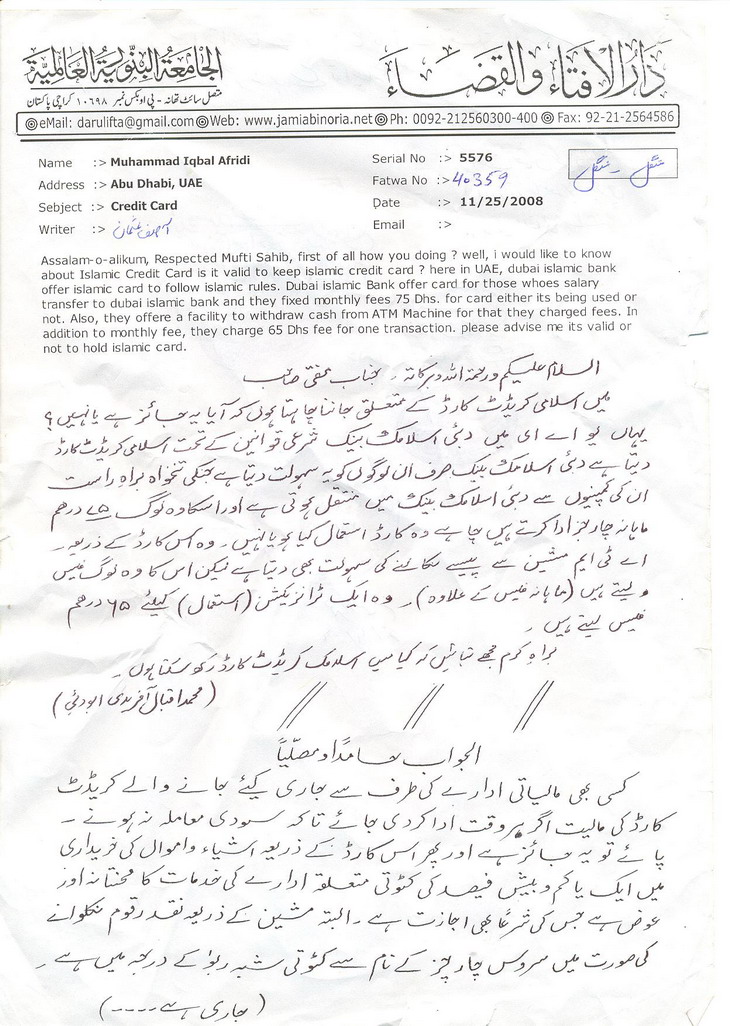 دار الافتاء والقضاء
الجامعة البنورية العالمية
متصل سائٹ تھانہ - پی او بکس نمبر ۱۰۶۹۸ کراچی پاکستان
eMail: darulifta@gmail.com Web: www.jamiabinoria.net Ph: 0092-212560300-400 Fax: 92-21-2564586
Name :> Muhammad Iqbal Afridi
Address :> Abu Dhabi, UAE
Sebject :> Credit Card
Writer :>
Serial No :> 5576
Fatwa No :> 40359
Date :> 11/25/2008
Email :>
Assalam-o-alikum, Respected Mufti Sahib, first of all how you doing ? well, i would like to know
about Islamic Credit Card is it valid to keep islamic credit card ? here in UAE, dubai islamic bank
offer islamic card to follow islamic rules. Dubai islamic Bank offer card for those whoes salary
transfer to dubai islamic bank and they fixed monthly fees 75 Dhs. for card either its being used or
not. Also, they offere a facility to withdraw cash from ATM Machine for that they charged fees. In
addition to monthly fee, they charge 65 Dhs fee for one transaction. please advise me its valid or
not to hold islamic card.
السلام علیکم ورحمۃ اللہ وبرکاتہ ۔ جناب مفتی صاحب
میں اسلامی کریڈٹ کارڈ کے متعلق جاننا چاہتا ہوں کہ آیا یہ جائز ہے یا نہیں؟
یہاں یو اے ای میں دبئی اسلامک بینک شرعی قوانین کے تحت اسلامی کریڈٹ کارڈ
دیتا ہے دبئی اسلامک بینک صرف ان لوگوں کو یہ سہولت دیتا ہے جنکی تنخواہ براہِ راست
ان کی کمپنیوں سے دبئی اسلامک بینک میں منتقل ہوتی ہے اور اسکا وہ لوگ ۷۵ درھم
ماہانہ چارجز ادا کرتے ہیں چاہے وہ کارڈ استعمال کیا ہو یا نہیں ۔ وہ اس کارڈ کے ذریعہ
اے ٹی ایم مشین سے پیسے نکالنے کی سہولت بھی دیتا ہے لیکن اس کا وہ لوگ فیس
لیتے ہیں (ماہانہ فیس کے علاوہ) ۔ وہ ایک ٹرانزیکشن (استعمال) کیلئے ۶۵ درھم
فیس لیتے ہیں ۔
براہِ کرم مجھے بتائیں کہ کیا میں اسلامک کریڈٹ کارڈ رکھ سکتا ہوں ۔
(محمد اقبال آفریدی ابوظبی)
الجواب حامدًا ومصلّیاً
کسی بھی مالیاتی ادارے کی طرف سے جاری کیئے جانے والے کریڈٹ
کارڈ کی مالیت اگر بروقت ادا کردی جائے تاکہ سودی معاملہ نہ ہونے
پائے تو یہ جائز ہے اور پھر اس کارڈ کے ذریعہ اشیاء واموال کی خریداری
میں ایک یا کم وبیش فیصد کی کٹوتی متعلقہ ادارے کی خدمات کا محنتانہ اور
عوض ہے جس کی شرعًا بھی اجازت ہے ۔ البتہ مشین کے ذریعہ نقد رقوم نکلوانے
کی صورت میں سروس چارجز کے نام سے کٹوتی شبہ ربوٰ کے درجہ میں ہے ۔
(جاری ہے ۔۔۔۔)